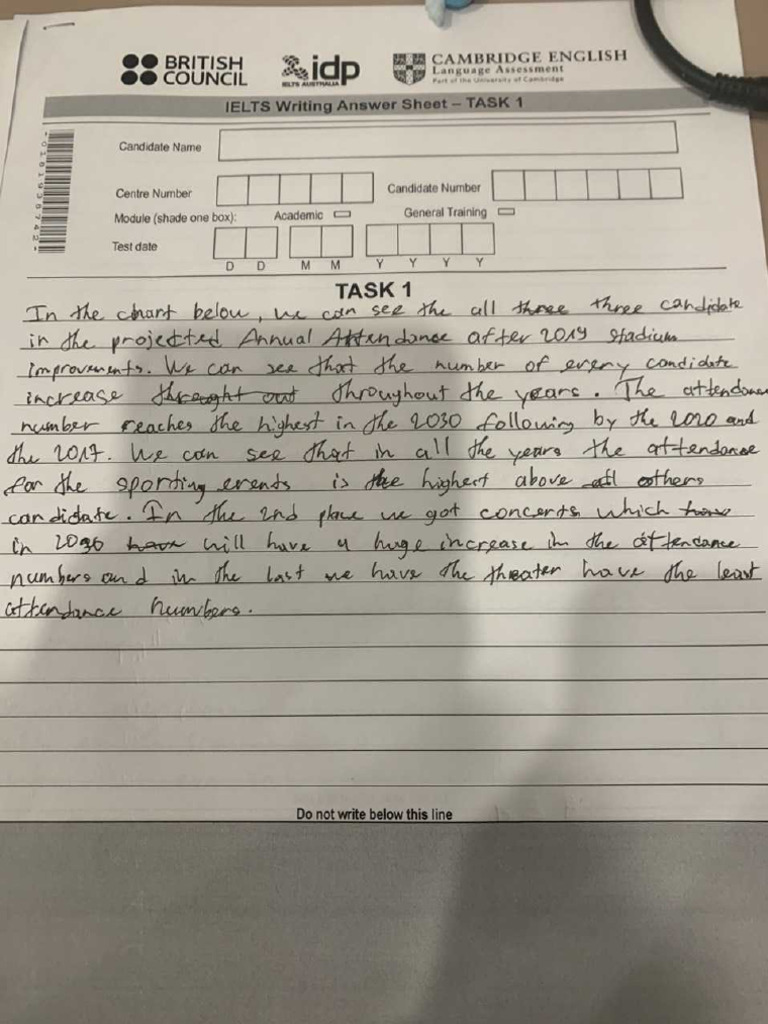 BRITISH COUNCIL
idp
IELTS AUSTRALIA
CAMBRIDGE ENGLISH
Language Assessment
Part of the University of Cambridge
IELTS Writing Answer Sheet – TASK 1
Candidate Name
Centre Number
Candidate Number
Module (shade one box):
Academic
General Training
Test date
D D M M Y Y Y Y
TASK 1
In the chart below, we can see the all three three candidate
in the projected Annual Attendance after 2019 stadium
improvements. We can see that the number of every candidate
increase throught out throughout the years. The attendance
number reaches the highest in the 2030 following by the 2020 and
the 2017. We can see that in all the years the attendance
for the sporting events is the highest above all others
candidate. In the 2nd place we got concerts which have
in 2030 have will have a huge increase in the attendance
numbers and in the last we have the theater have the least
attendance numbers.
Do not write below this line